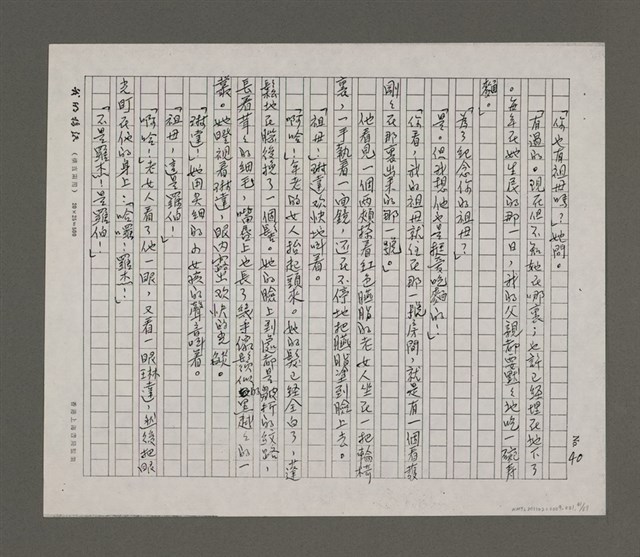 「你也有祖母嗎？」她問。
「有過的。現在但不知她在哪裏；也許已經埋在地下了
。每年在她生辰的那一日，我的父親都要默默地吃一碗壽
麵。」
「為了紀念你的祖母？」
「是。但我想他也是挺愛吃麵的！」
「你看，我的祖母就住在那一號房間，就是有一個看護
剛剛在那裏出來的那一號。」
他看見一個兩頰搽着紅色臙脂的老女人坐在一把輪椅
裏，一手執着一面鏡，還在不停地把臙脂塗到臉上去。
「祖母！」琳達歡快地叫着。
「啊哈！」年老的女人抬起頭來。她的髮已經全白了，蓬
鬆地在腦後挽了一個髻。她的臉上到處都是皺折的紋路，
長着茸茸的細毛，嘴唇上也長了幾半像鬍似的黑越越的一
叢。她瞪視着琳達，眼內露出歡快的光鋩。
「琳達！」她用尖細的小女孩的聲音叫着。
「祖母，這是羅伯！」
「啊哈！」老女人看了他一眼，又看一眼琳達，然後把眼
光盯在他的身上：「哈囉！羅杰！」
「不是羅杰！是羅伯！」
P 40
（橫直兩用）20×25=500
香港上海印書館印製